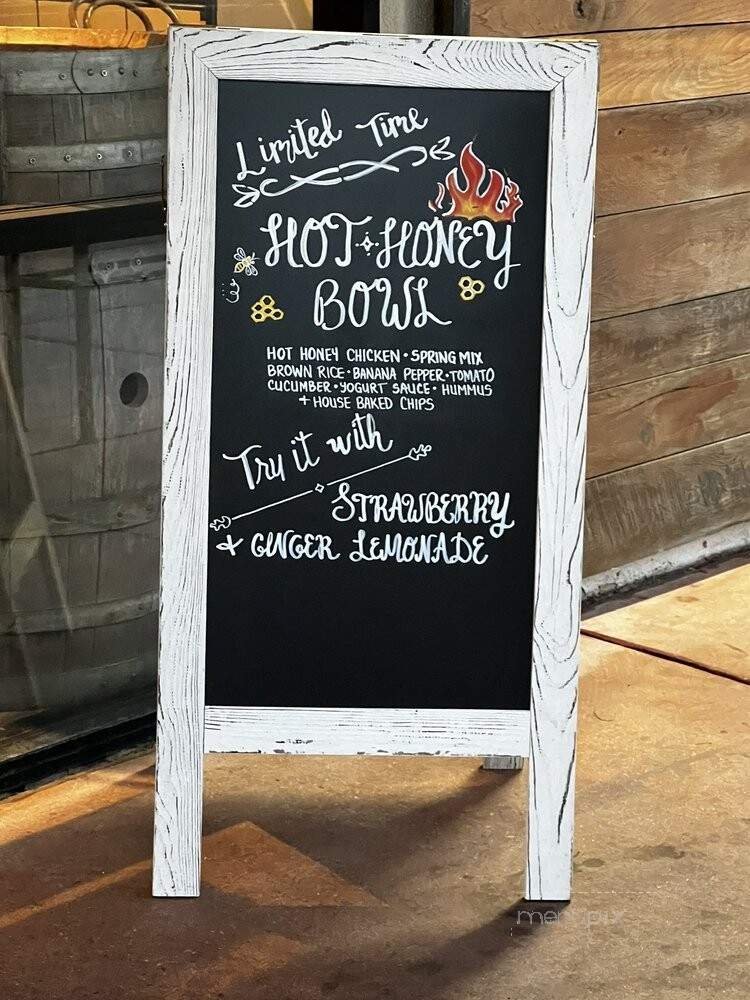 Limited Time
HOT HONEY
BOWL
HOT HONEY CHICKEN • SPRING MIX
BROWN RICE • BANANA PEPPER • TOMATO
CUCUMBER • YOGURT SAUCE • HUMMUS
+ HOUSE BAKED CHIPS
Try it with
STRAWBERRY
+ GINGER LEMONADE
menupix